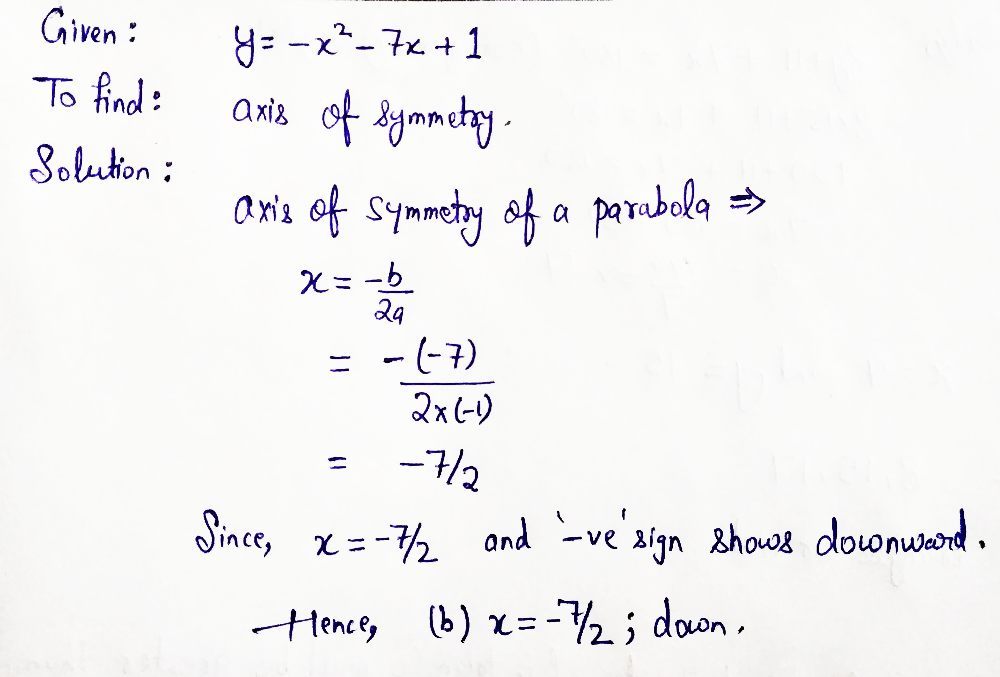 Given: y = -x² - 7x + 1
To find: axis of symmetry.
Solution:
axis of symmetry of a parabola ⇒
x = -b/2a
= -(-7)/2×(-1)
= -7/2
Since, x = -7/2 and '-ve' sign shows downward.
Hence, (b) x = -7/2 ; down.